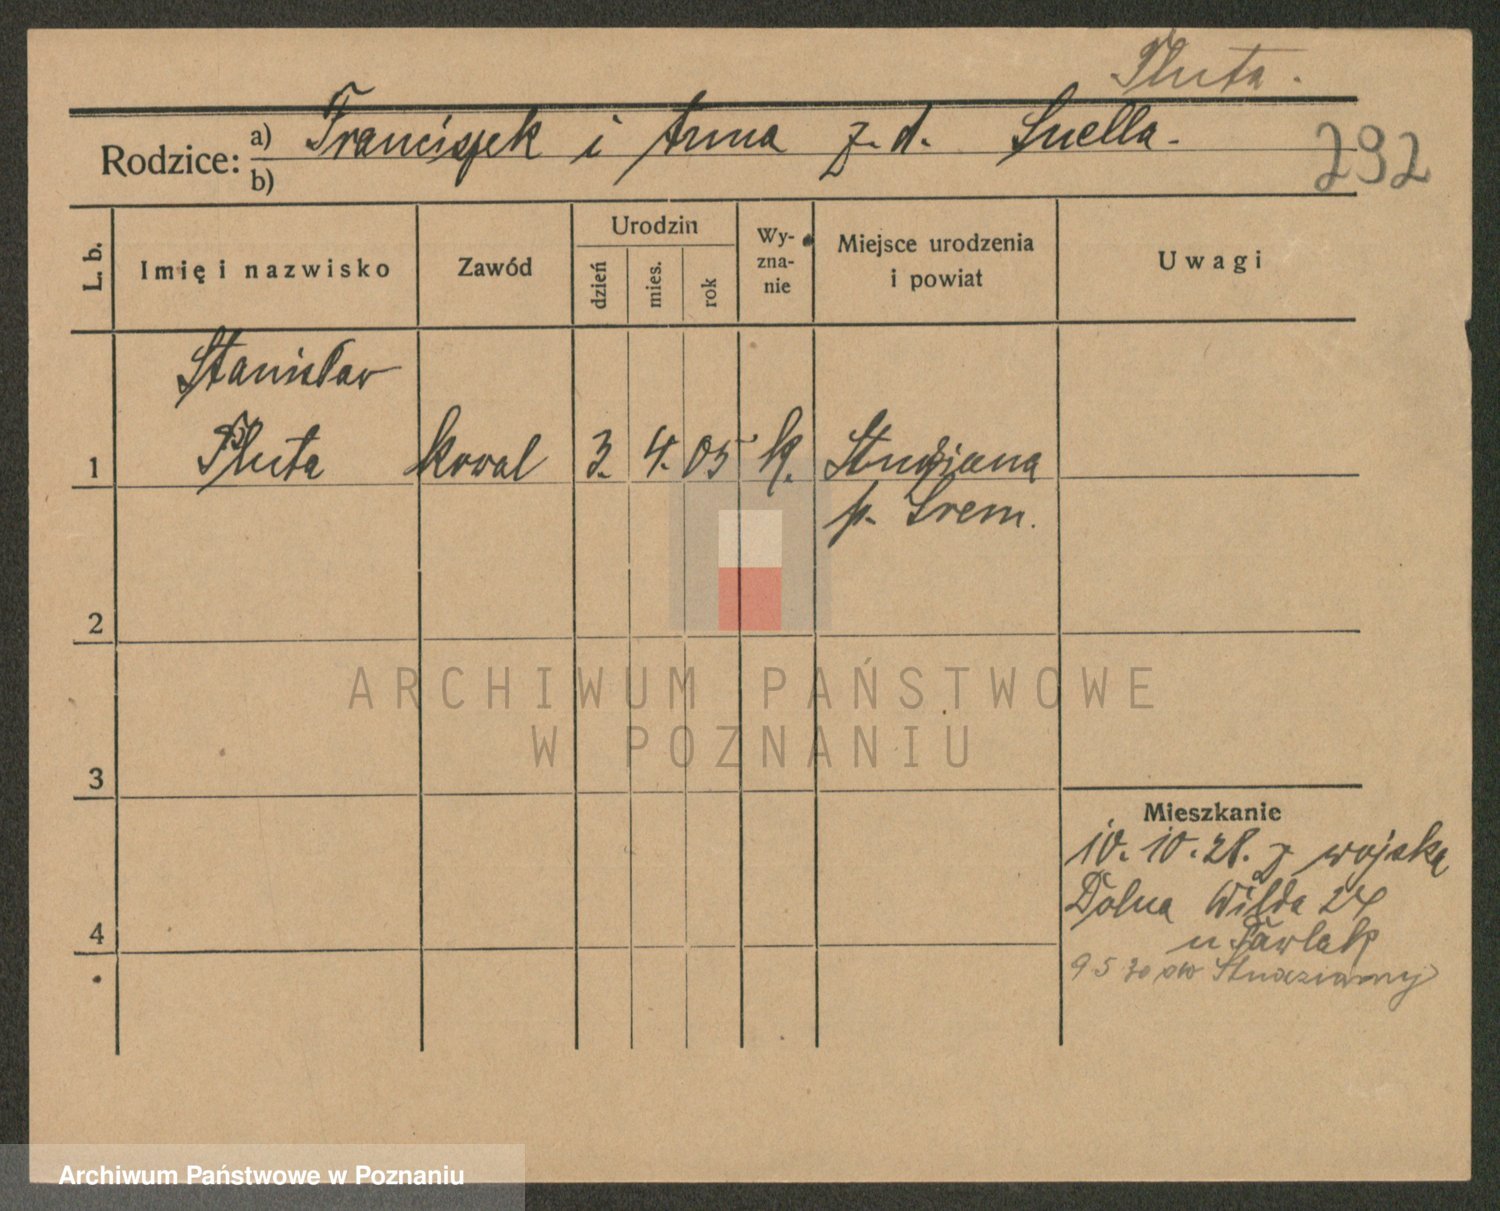 Pluta.
Rodzice: a) Franciszek i Anna z. d. Snella.
b)
292
L. b.
Imię i nazwisko
Zawód
Urodzin
dzień
mies.
rok
Wy-
zna-
nie
Miejsce urodzenia
i powiat
Uwagi
Stanisław
1 Pluta kowal 3. 4. 05 k.
p. Śrem.
2
3
4
Mieszkanie
10. 10. 28. z wojska
Dolna Wilda 24
u Pawlak
9 5 30
ARCHIWUM PAŃSTWOWE
W POZNANIU
Archiwum Państwowe w Poznaniu